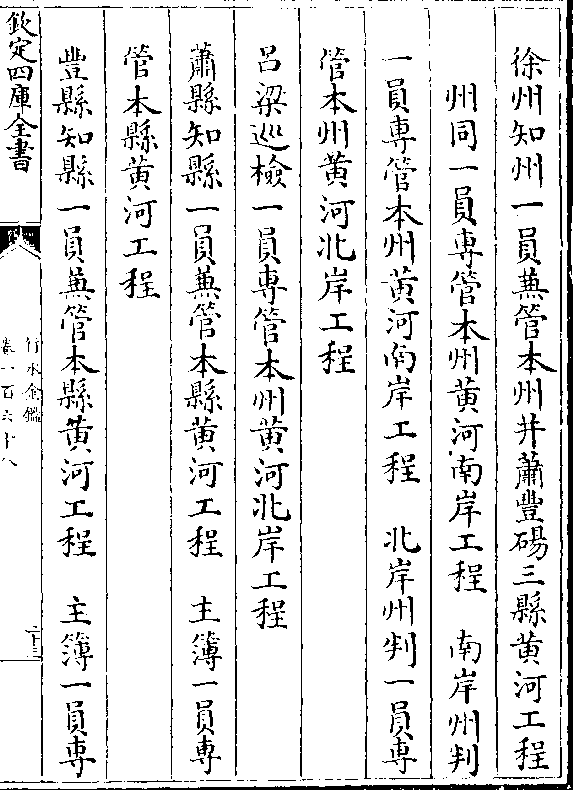 徐州知州一員蕪管本州并蕭豐碭三縣黄河工程
州同一員專管本州黄河南岸工程　南岸州判
一員專管本州黄河南岸工程　北岸州判一員專
管本州黄河北岸工程
呂梁巡檢一員專管本州黄河北岸工程
蕭縣知縣一員蕪管本縣黄河工程　主簿一員專
管本縣黄河工程
豐縣知縣一員蕪管本縣黄河工程　主簿一員專
欽定四庫全書
行水金鑑
卷一百六十八
二十三